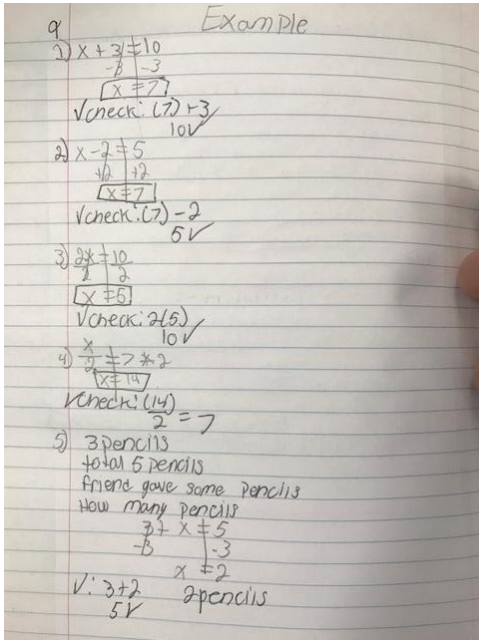 Example
9
1) x + 3 = 10
-3 -3
x = 7
√check: (7) + 3
10✓
2) x - 2 = 5
+2 +2
x = 7
√check: (7) - 2
5✓
3) 2x = 10
2 2
x = 5
√check: 2(5)
10✓
4) x
2 = 7 * 2
x = 14
√check: (14)
2 = 7
5) 3 pencils
total 5 pencils
friend gave some pencils
How many pencils
3 + x = 5
-3 -3
x = 2
√: 3+2
5✓ 2 pencils